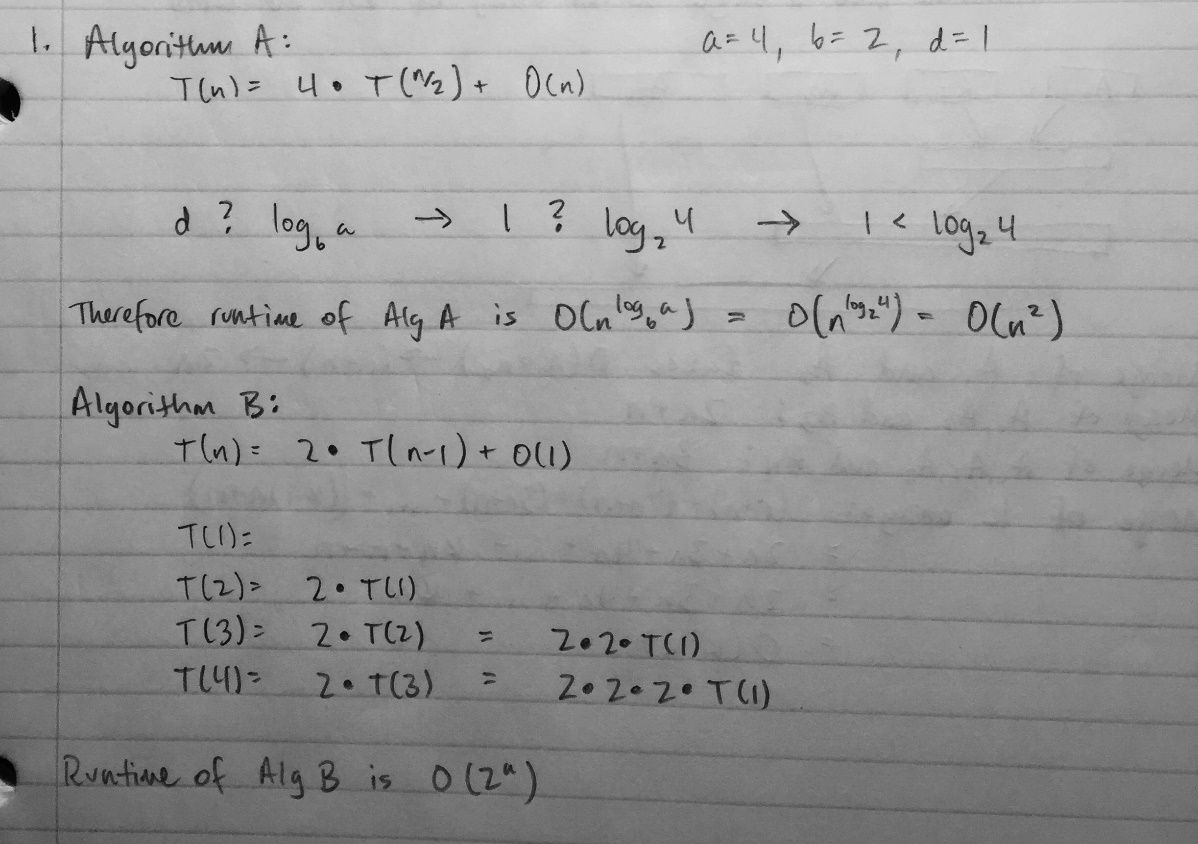 1. Algorithm A: a=4, b=2, d=1
T(n)= 4 • T(n/2) + O(n)
d ? log_b a → 1 ? log_2 4 → 1 < log_2 4
Therefore runtime of Alg A is O(n^(log_b a)) = O(n^(log_2 4)) = O(n^2)
Algorithm B:
T(n)= 2 • T(n-1) + O(1)
T(1)=
T(2)= 2 • T(1)
T(3)= 2 • T(2) = 2 • 2 • T(1)
T(4)= 2 • T(3) = 2 • 2 • 2 • T(1)
Runtime of Alg B is O(2^n)